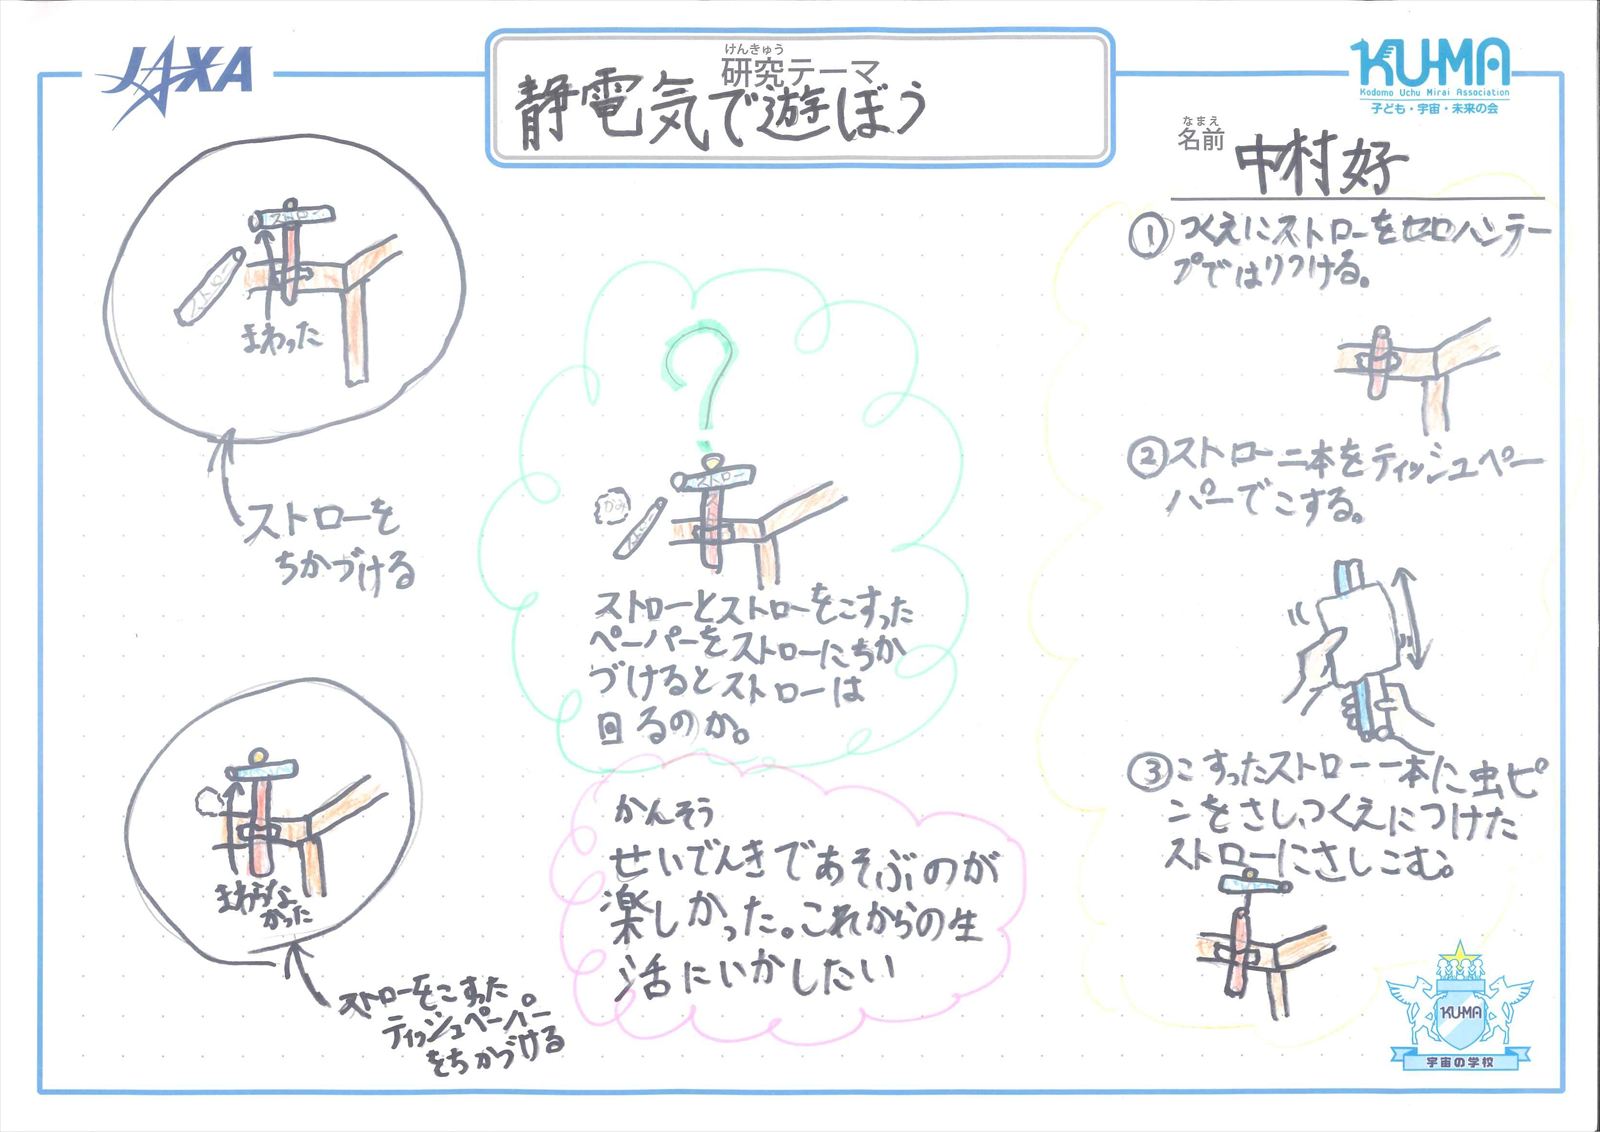 JAXA
けんきゅう
研究テーマ
静電気で遊ぼう
KU-MA
Kodomo Uchu Mirai Association
子ども・宇宙・未来の会
なまえ
名前
中村好
①つくえにストローをセロハンテー
プではりつける。
②ストロー二本をティッシュペー
パーでこする。
③こすったストロー一本に虫ピ
ンをさし、つくえにつけた
ストローにさしこむ。
ストロー
ストロー
かみ
ストロー
ストローとストローをこすった
ペーパーをストローにちか
づけるとストローは
回るのか。
ストロー
ストロー
まわった
ストローを
ちかづける
まわらな
かった
ストローをこすった
ティッシュペーパー
をちかづける
かんそう
せいでんきであそぶのが
楽しかった。これからの生
活にいかしたい
KU-MA
宇宙の学校